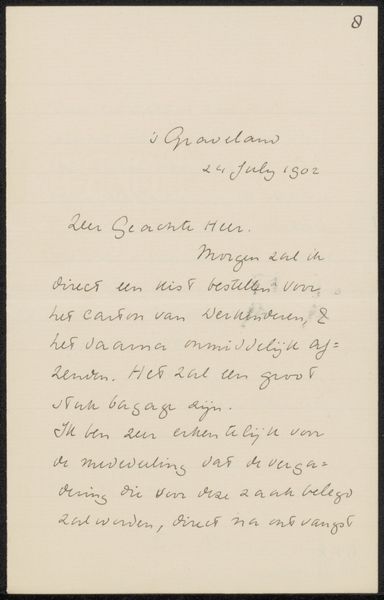 8
's Graveland
24 July 1902
Zeer Geachte Heer.
Morgen zal ik
direct een kist bestellen voor
het carton van Derkinderen, &
het daarna onmiddelijk af=
zenden. Het zal een groot
stuk bagage zijn.
Ik ben zeer erkentelijk voor
de mededeeling dat de verga-
dering die voor deze zaak belegd
zal worden, direct na ontvangst